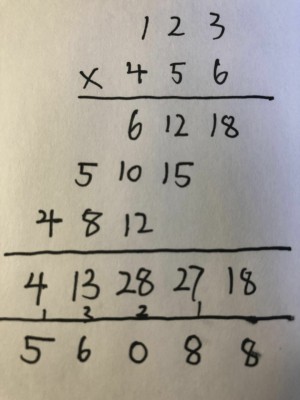 1 2 3
× 4 5 6
6 12 18
5 10 15
4 8 12
4 13 28 27 18
1 3 2 1
5 6 0 8 8